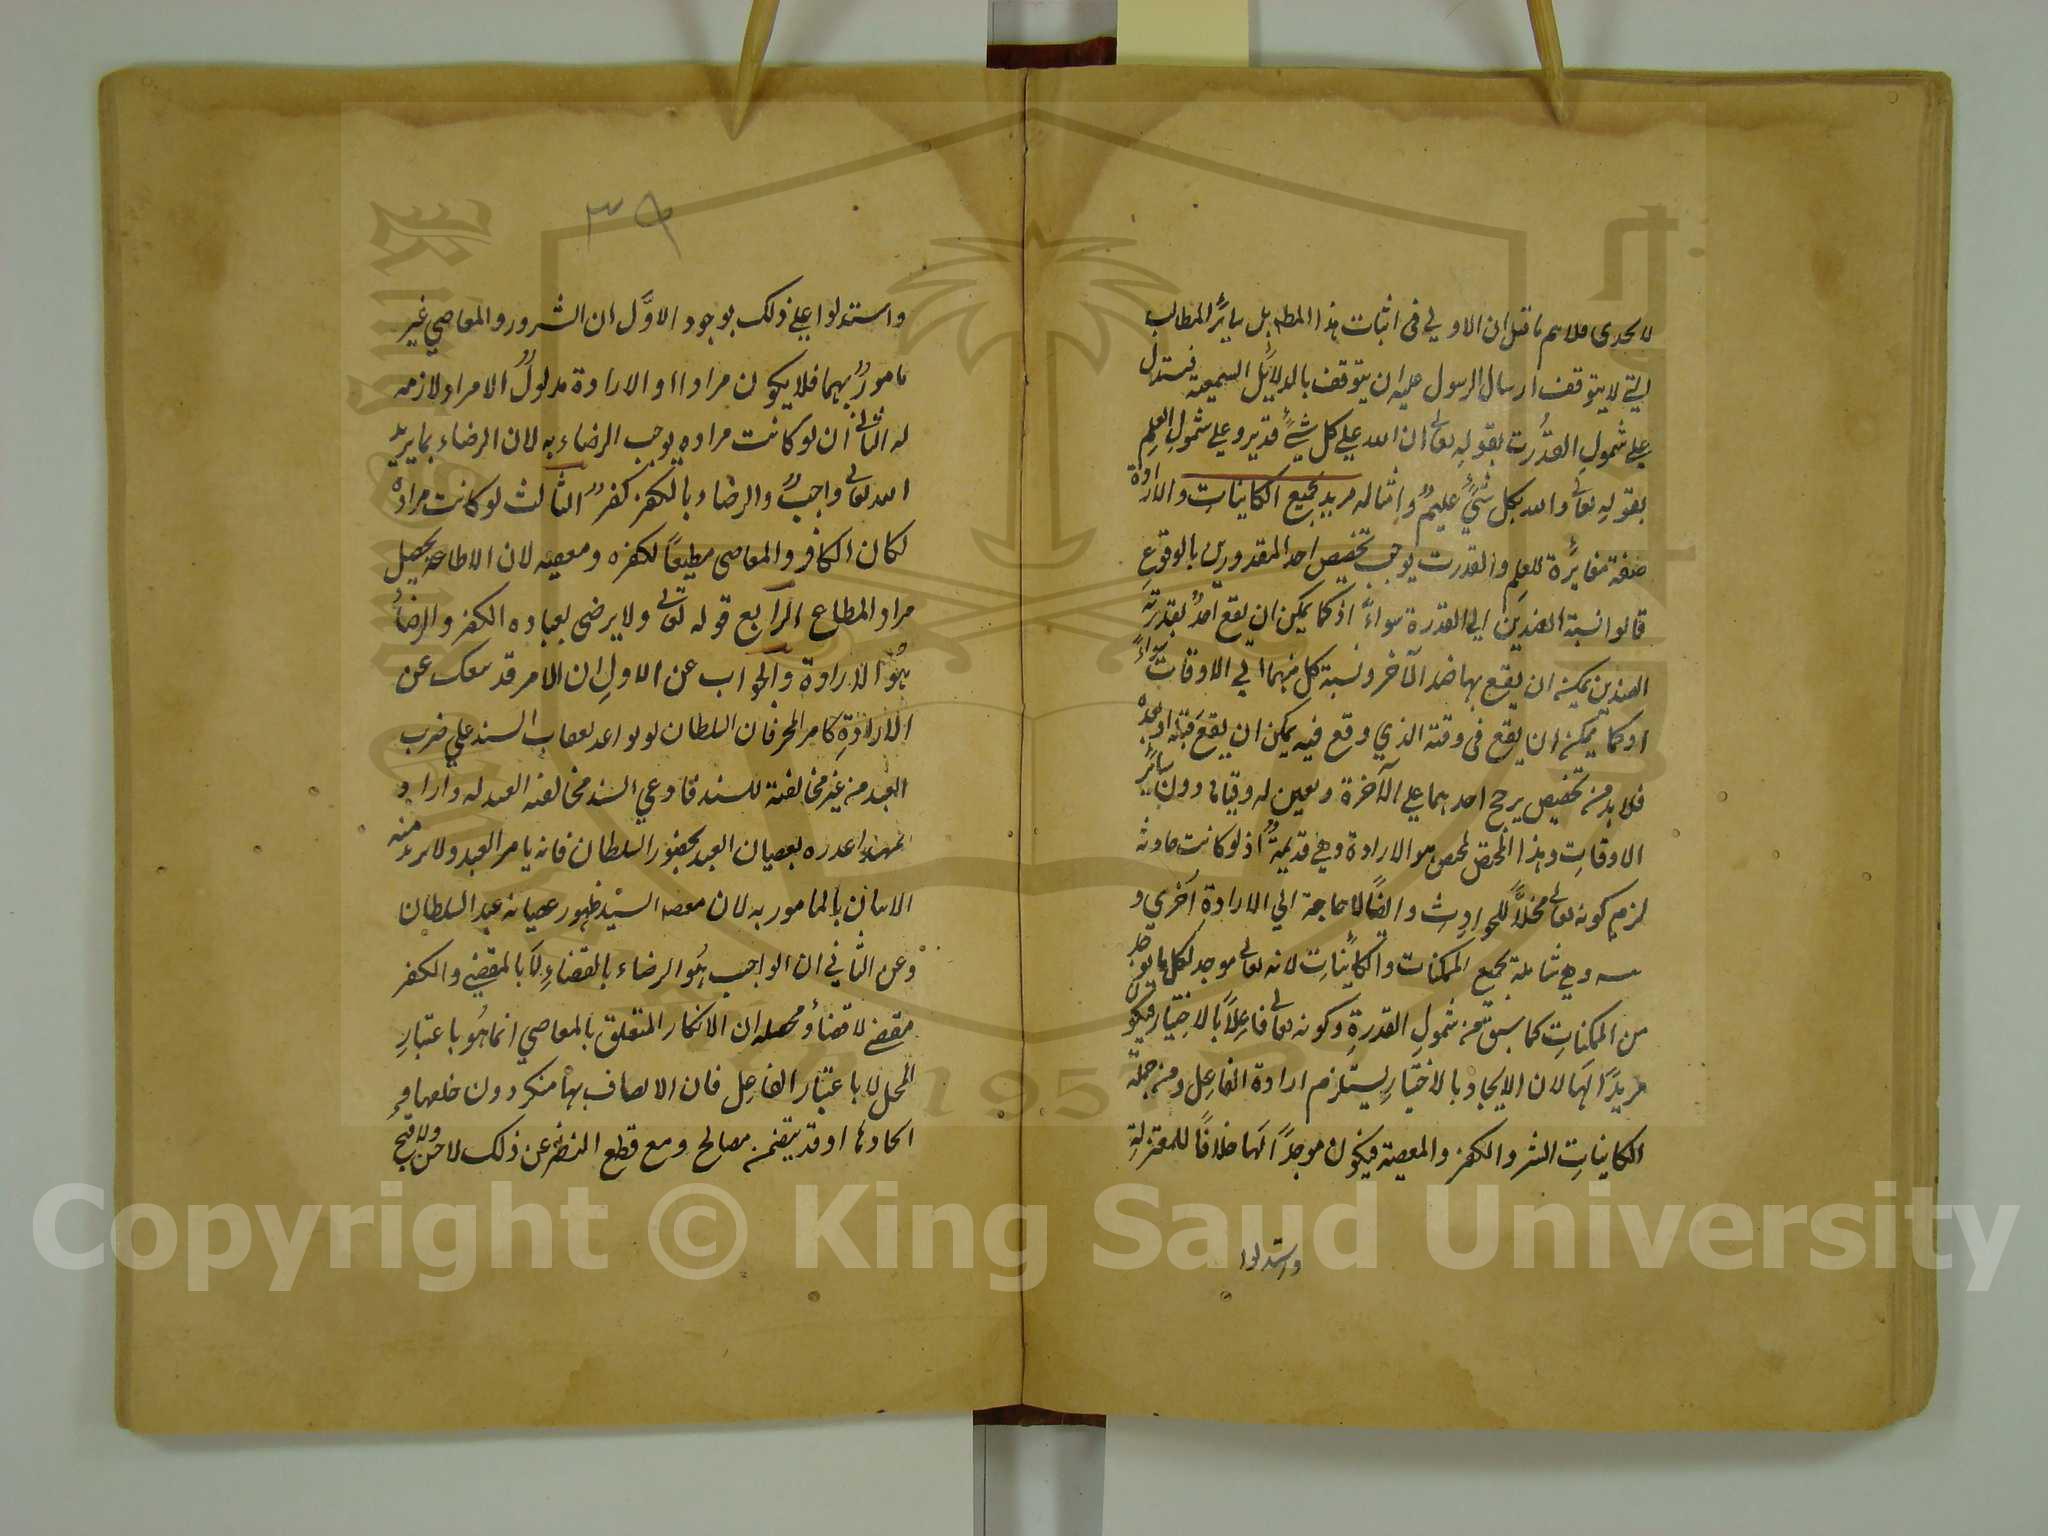 لا يجدى فلا هم ما قيل ان الاولى فى اثبات هذا المطلب بل سائر المطالب
التي لا يتوقف ارسال الرسول عليه ان يتوقف بالدلائل السمعية فيستدل
على شمول القدرت بقوله تعالى ان الله على كل شئ قدير وعلى شمول العلم
بقوله تعالى والله بكل شئ عليم وامثاله مريد بجميع الكاينات والارادة
صفة مغايرة للعلم والقدرت يوجب تخصيص احد المقدورين بالوقوع
قالوا نسبة الضدين الى القدرة سواء اذ كما يمكن ان يقع احد بقدرته
الضدين يمكنه ان يقع بها ضد الآخر ونسبة كل منهما الى الاوقات سواء
اذ كما يمكن ان يقع فى وقته الذي وقع فيه يمكن ان يقع قبله او بعده
فلا بد من تخصيص يرجح احدهما على الآخرة ويعين له وقتا دون سائر
الاوقات وهذا المخصص هو الارادة وهي قديمة اذ لو كانت حادثة
لزم كونه تعالى محلا للحوادث وايضا لاحاجة الي الارادة اخري و
وهي شاملة بجميع الممكنات والكائنات لانه تعالى موجد لكل ما يوجد
من الممكنات كما سبق من شمول القدرة وكونه تعالى فاعلا بالاختيار فيكون
مريدا لها لان الايجاد بالاختيار يستلزم ارادة الفاعل ومن جملة
الكاينات الشر والكفر والمعصية فيكون موجدا لها خلافا للمعتزلة
واستدلوا
٣٩
واستدلوا على ذلك بوجود الاول ان الشرور والمعاصي غير
مامور بهما فلا يكون مرادا او الارادة مدلول الامر او لازمه
له الثانى ان لو كانت مراده يوجب الرضاء به لان الرضاء بما يريد
الله تعالى واجب والرضاء بالكفر كفر الثالث لو كانت مراده
لكان الكافر والمعاصى مطيعا لكفره ومعصيه لان الاطاعة يحصل
مراد المطاع الرابع قوله تعالى ولا يرضى لعباده الكفر والرضاء
هو الارادة والجواب عن الاول ان الامر قد ينفك عن
الارادة كامر المخبر فان السلطان لو تواعد لعقاب السيد على ضرب
العبد من غير مخالفة للسيد فادعي السيد مخالفة العبد له واراد
تمهيد اعذره بعصيان العبد بحضور السلطان فانه يامر العبد ولا يريد منه
الاتيان بالمامور به لان مقصد السيد ظهور عصيانه عبد السلطان
وعن الثاني ان الواجب هو الرضاء بالقضاء لا بالمقضي والكفر
مقضي لا قضاء ومحصله ان الانكار المتعلق بالمعاصي انما هو باعتبار
المحل لا باعتبار الفاعل فان الاتصاف بها منكر دون خلقها و
ايجادها او قد يتضمن مصالح ومع قطع النظر عن ذلك لا حسن ولا قبح
Copyright © King Saud University
King Saud University
1957